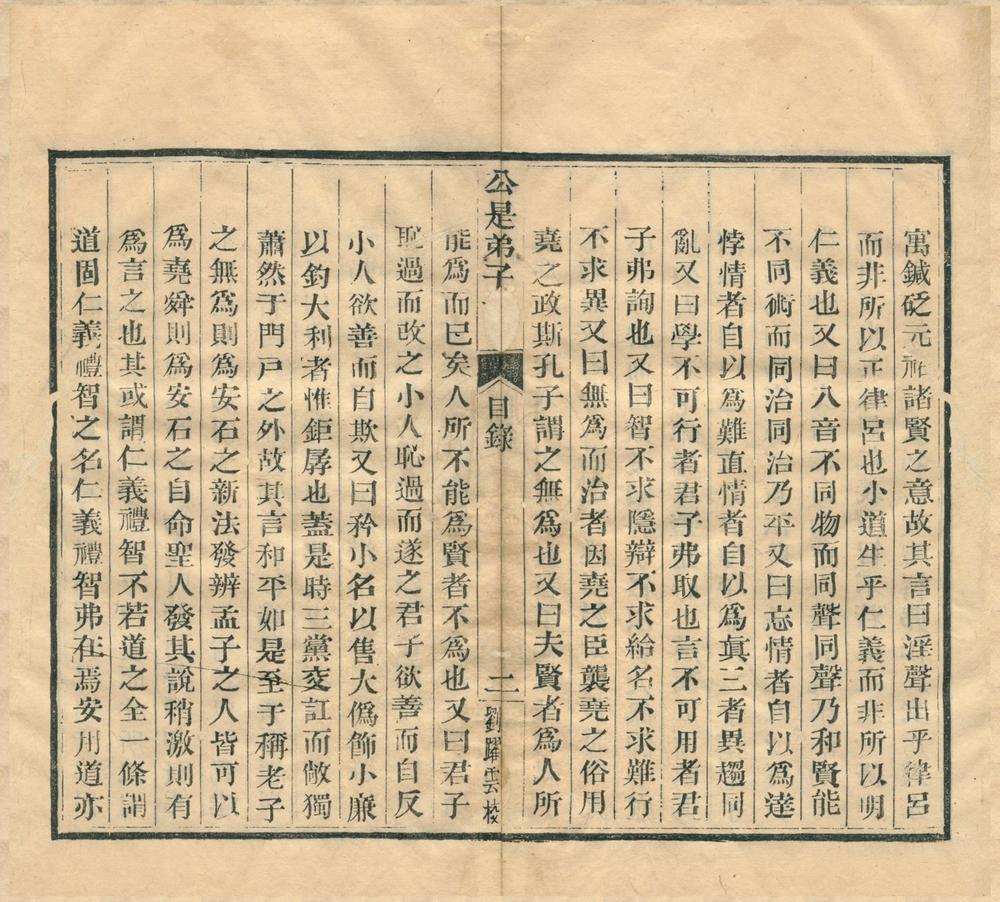 寓鍼砭元祐諸賢之意故其言曰淫聲出乎律呂
而非所以正律呂也小道生乎仁義而非所以明
仁義也又曰八音不同物而同聲同聲乃和賢能
不同術而同治同治乃平又曰忘情者自以爲達
悖情者自以爲難直情者自以爲眞三者異趨同
亂又曰學不可行者君子弗取也言不可用者君
子弗詢也又曰智不求隱辯不求給名不求難行
不求異又曰無爲而治者因堯之臣襲堯之俗用
堯之政斯孔子謂之無爲也又曰夫賢者爲人所
公是弟子 目錄 二 劉躍雲校
能爲而已矣人所不能爲賢者不爲也又曰君子
恥過而改之小人恥過而遂之君子欲善而自反
小人欲善而自欺又曰矜小名以售大僞飾小廉
以釣大利者惟鉅孱也蓋是時三黨交訌而敞獨
蕭然于門戸之外故其言和平如是至于稱老子
之無爲則爲安石之新法發辨孟子之人皆可以
爲堯舜則爲安石之自命聖人發其說稍激則有
爲言之也其或謂仁義禮智不若道之全一條謂
道固仁義禮智之名仁義禮智弗在焉安用道亦